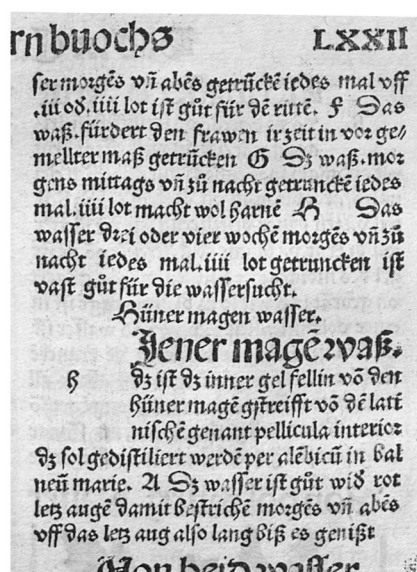 rn buochs LXXII
ser morgēs vñ abēs getrūckē iedes mal vff
.iii od̄. iiii lot ist gůt für dē rittē. F Das
waß. fürdert den frawen ir zeit in vor ge⸗
mellter maß getrūcken G Dz waß. mor
gens mittags vñ zů nacht getrunckē iedes
mal. iiii lot macht wol harnē H Das
wasser drei oder vier wochē morgēs vñ zů
nacht iedes mal. iiii lot getruncken ist
vast gůt für die wassersucht.
Hüner magen wasser.
Hener magē waß.
h dz ist dz inner gel fellin vō den
hüner magē gstreifft vō dē lati
nischē genant pellicula interior
dz sol gedistiliert werdē per alēbicū in bal
neū marie. A Dz wasser ist gůt wid̄ rot
letz augē damit bestrichē morgēs vñ abēs
vff das letz aug also lang biß es genißt
Von heid wasser